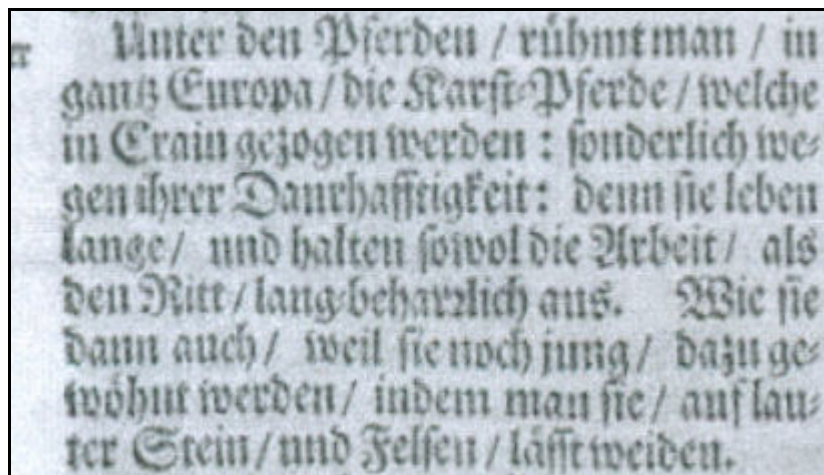 Unter den Pferden / rühmt man / in
gantz Europa / die Karst-Pferde / welche
in Crain gezogen werden : sonderlich we-
gen ihrer Daurhafftigkeit : denn sie leben
lange / und halten sowol die Arbeit / als
den Ritt / lang-beharrlich aus. Wie sie
dann auch / weil sie noch jung / dazu ge-
wöhnt werden / indem man sie / auf lau-
ter Stein / und Felsen / lässt weiden.